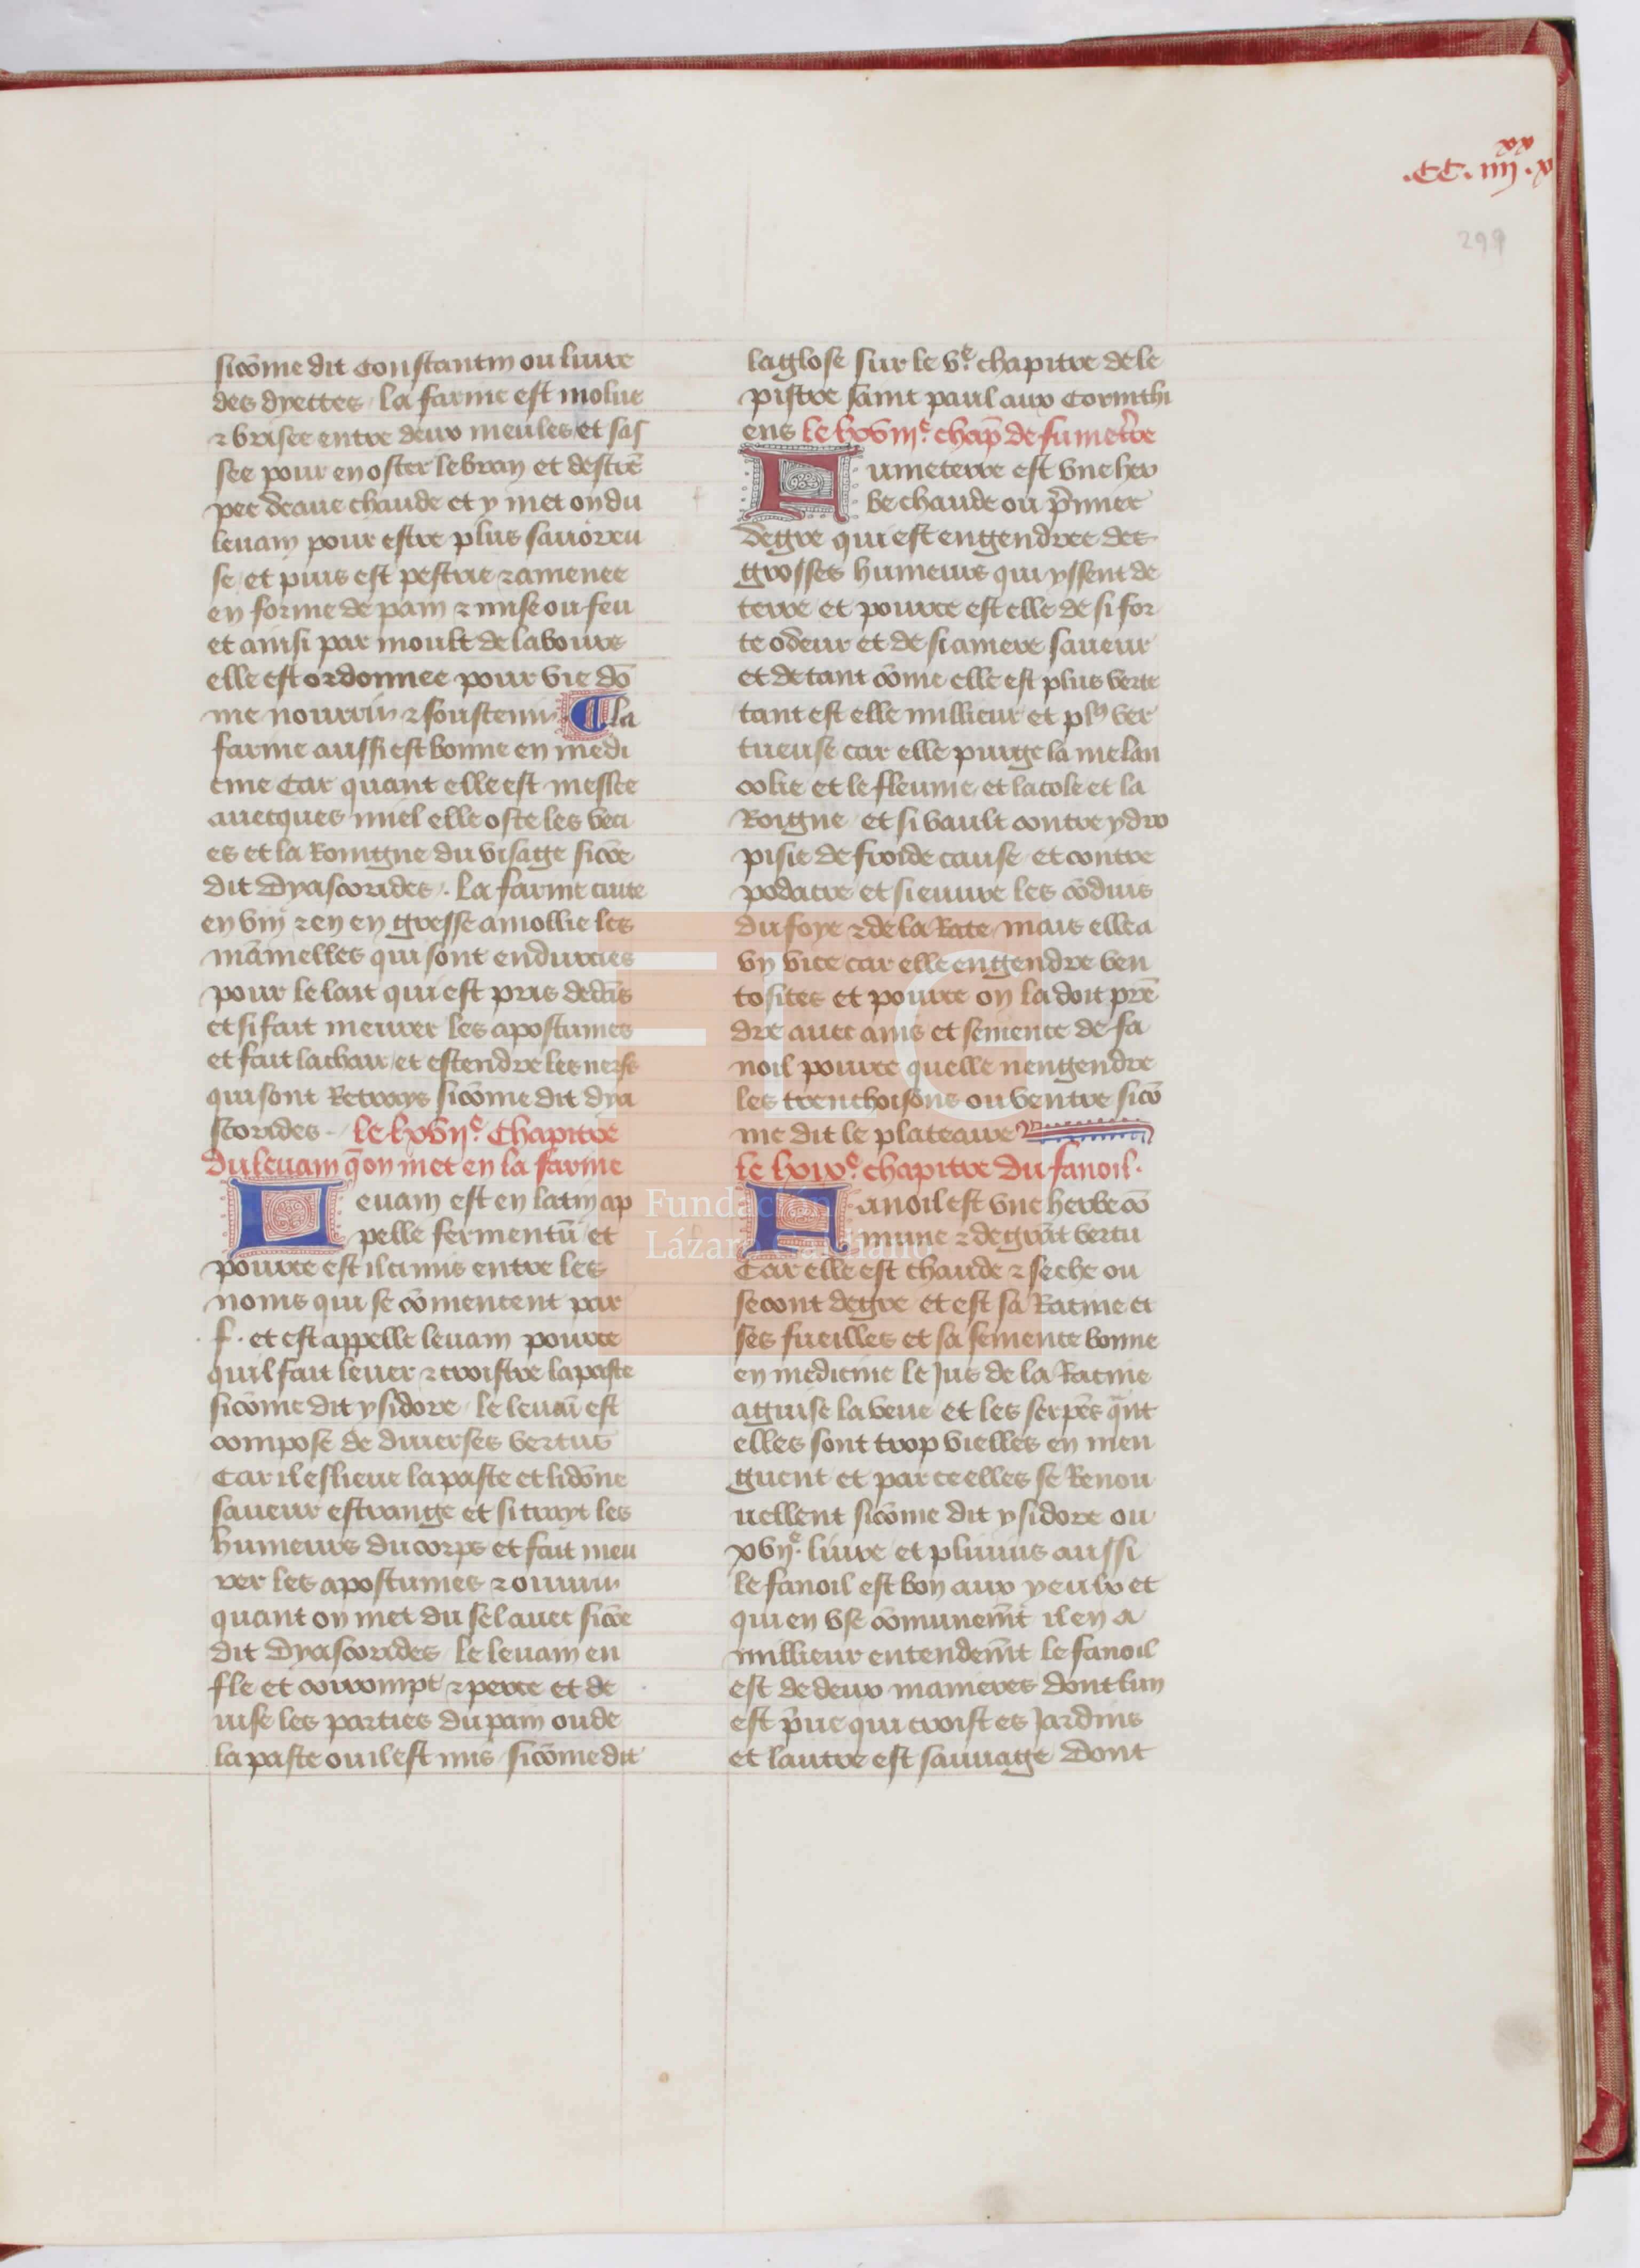 .CC.iiii xx.x
299
sicõme dit Constantin ou livre
des dyettes la farine est molue
⁊ brisee entre deux meules et sas
see pour en oster le bran et destrẽ
pee deaue chaude et y met on du
levain pour estre plus savoreu
se et puis est pestrie ⁊ amenee
en forme de pain ⁊ mise ou feu
et ainsi par moult de labours
elle est ordonnee pour vie dõ
me nourrir ⁊ soustenir la
farine aussi est bonne en medi
cine Car quant elle est meslee
avecques miel elle oste les
es et la Roingne du visage sicõe
dit Dyascorides . La farine cuite
en vin ⁊ en en gresse amollie les
mãmelles qui sont endurcies
pour le lait qui est pris dedãs
et si fait meurer les apostumes
et fait lachar et estendre les nerfs
qui sont Retrays sicõme dit dya
scorides . le lxvije. Chapitre
du levain q̃ on met en la farine
Levain est en latin ap
pelle fermentũ et
pource est il ci mis entre les
noms qui se cõmencent par
. f . et est appelle levain pource
quil fait lever ⁊ croistre la paste
sicõme dit ysidore le levaĩ est
compose de diverses vertus
Car il eslieve la paste et li dõne
saveur estrange et si trayt les
humeurs du corps et fait meu
rer les apostumes ⁊ ouvrir
quant on met du sel avec sicõe
dit Dyascorides le levain en
fle et corrompt ⁊ perce et de
vise les parties du pain ou de
la paste ou il est mis sicõme dit
la glose sur le ve. chapitre de le
pistre saint paul aux Corinthi
ens le lxviije. chap̃ de fumet̃re
Fumeterre est une her
be chaude ou p̃mier
degre qui est engendree des
grosses humeurs qui yssent de
terre et pource est elle de si for
te odeur et de si amere saveur
et de tant cõme elle est plus verte
tant est elle millieur et plꝰ ver
tueuse car elle purge la melan
colie et le fleume et la cole et la
Roigne et si vault contre ydro
pisie de froide cause et contre
podacre et si euvre les cõduis
du foye ⁊ de la Rate mais elle a
un vice car elle engendre ven
tosites et pource on la doit prẽ
dre avec anis et semence de fa
noil pource quelle nengendre
les trenchoisons ou ventre sicõ
me dit le plateaire
le lxixe. chapitre du fanoil .
Fanoil est une herbe cõ
mune ⁊ de grãt vertu
Car elle est chaude ⁊ seche ou
secont degre et est sa Racine et
ses fueilles et sa semence bonne
en medicine le Jus de la Racine
aguise la veue et les serpẽs q̃nt
elles sont trop vielles en men
guent et par ce elles se Renou
vellent sicõme dit ysidore ou
xvije. livre et plinius aussi
le fanoil est bon aux yeulx et
qui en use cõmunemẽt il en a
millieur entendemẽt le fanoil
est de deux manieres dont lun
est p̃ve qui croist es Jardins
et lautre est sauvage dont
Fundación
Lázaro Galdiano